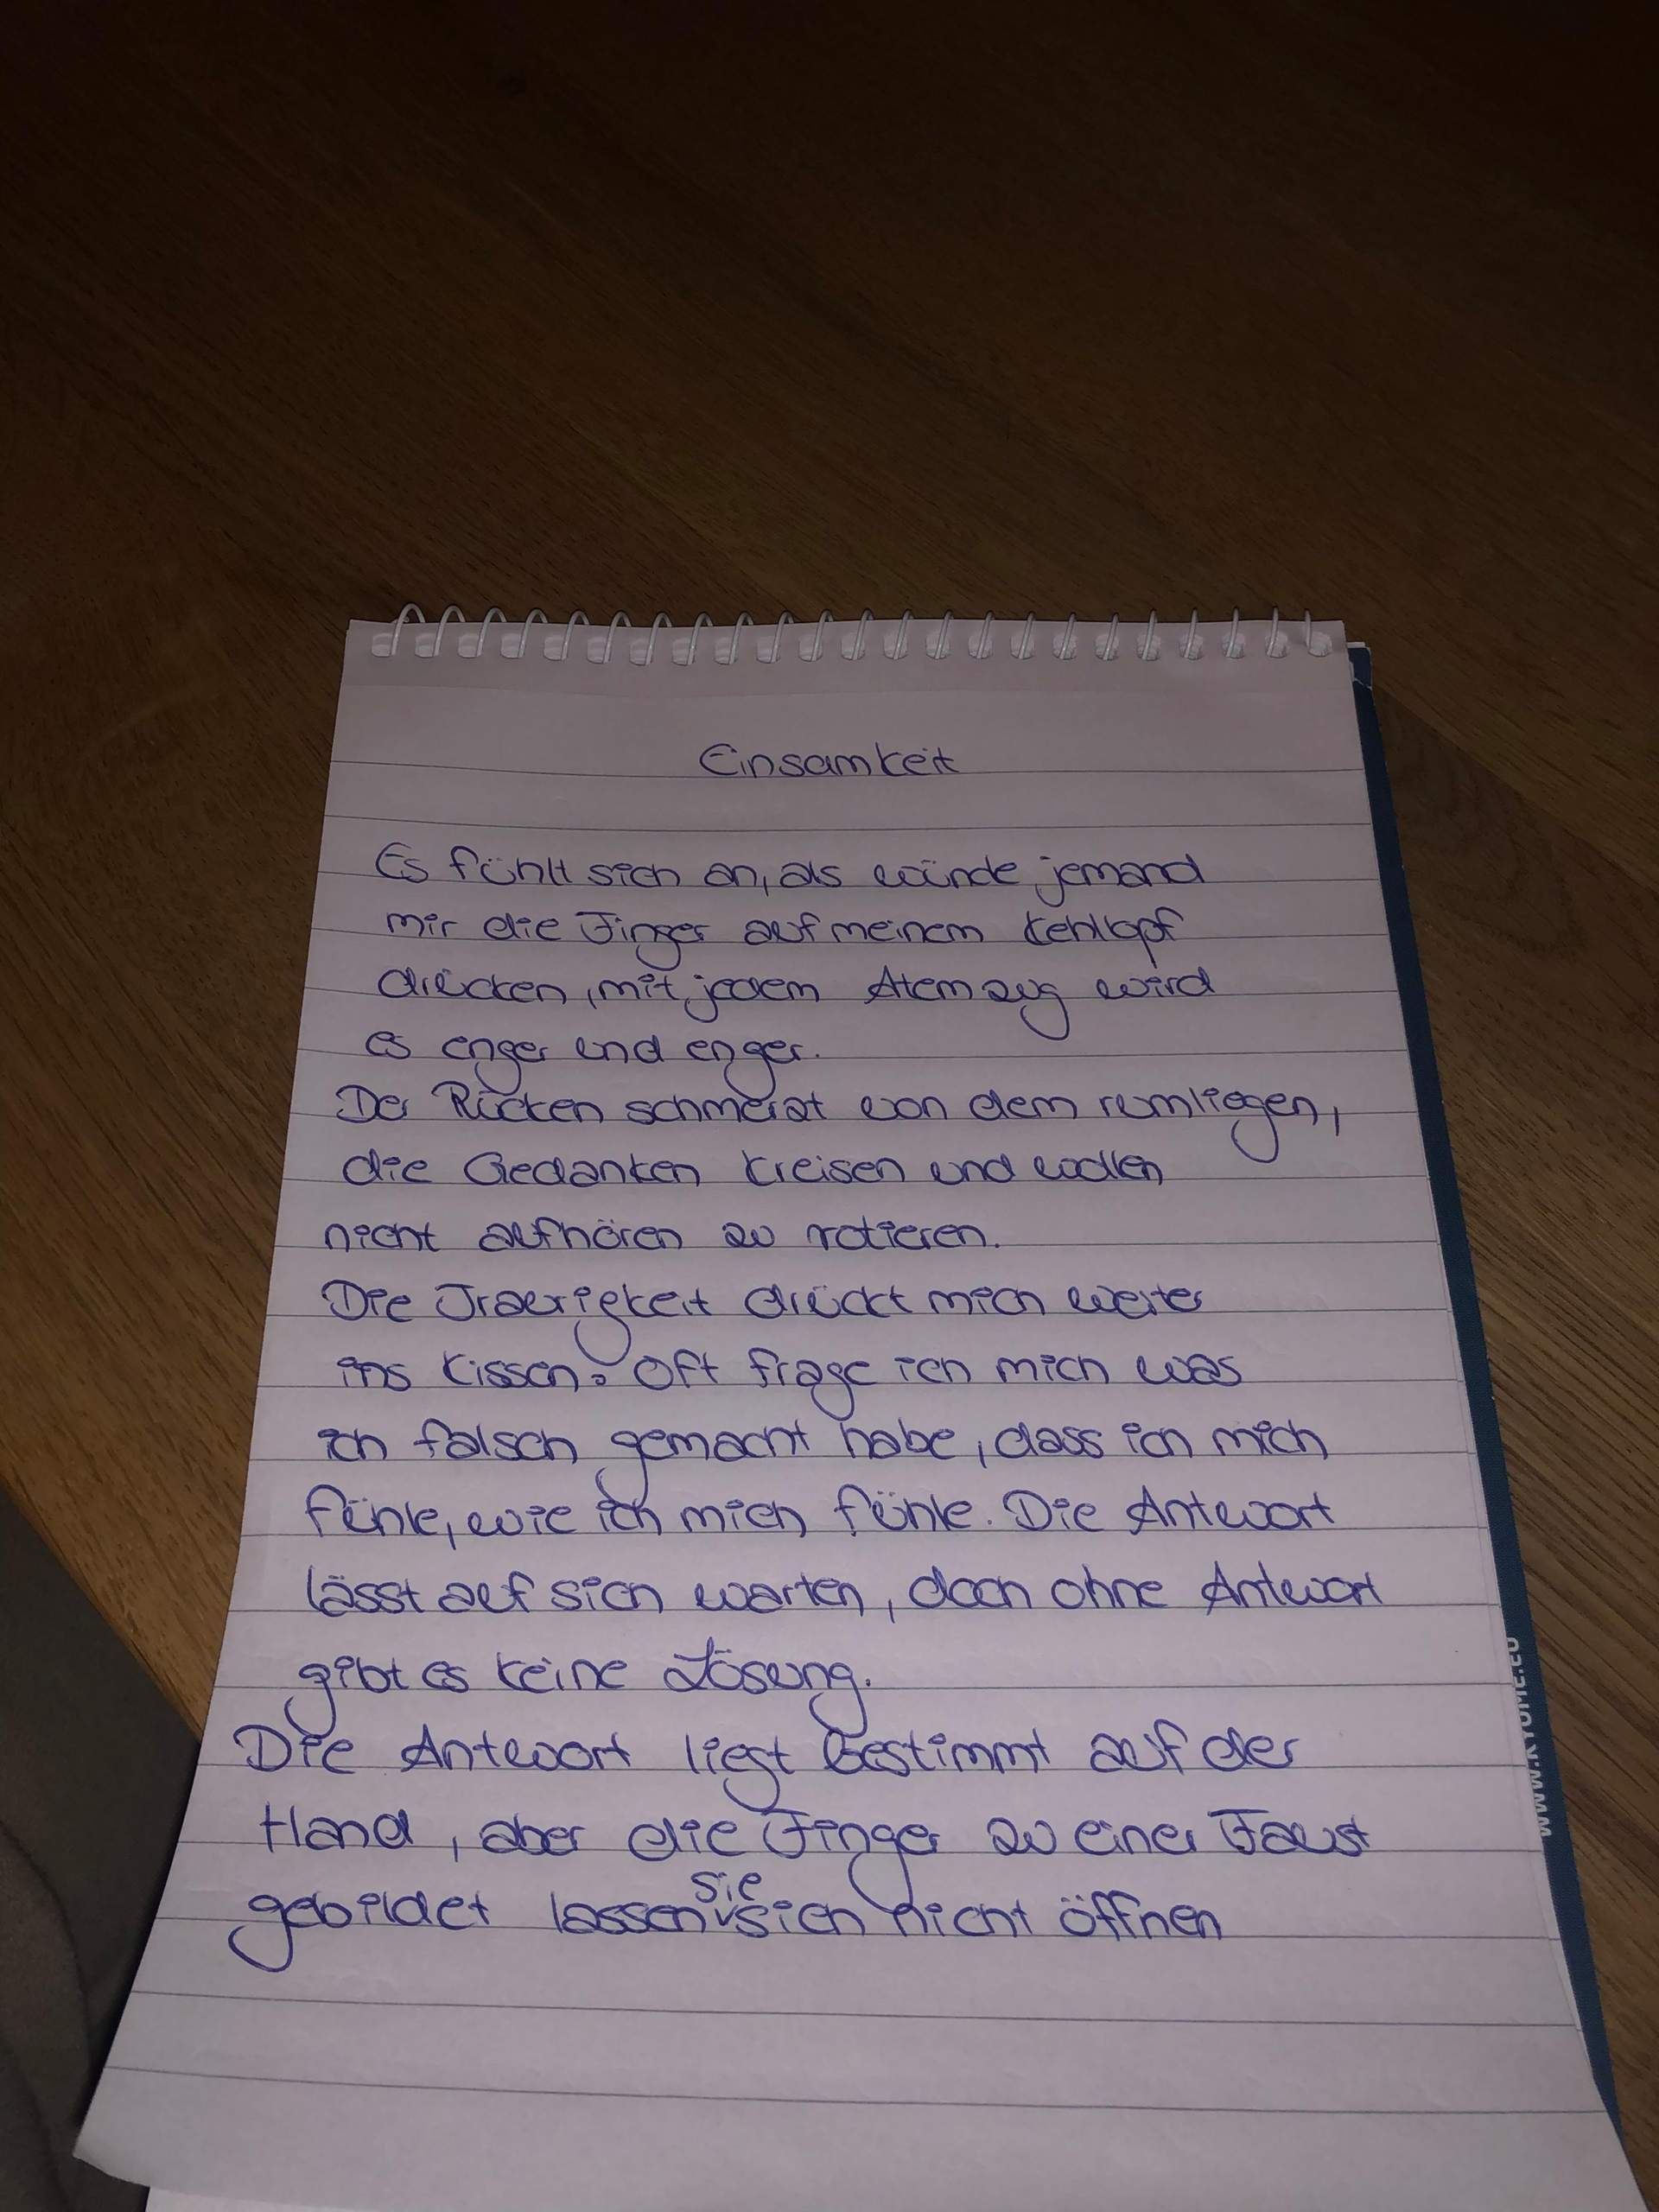 Einsamkeit
Es fühlt sich an, als würde jemand
mir die Finger auf meinem Kehlkopf
drücken, mit jedem Atemzug wird
es enger und enger.
Der Rücken schmerzt von dem rumliegen,
die Gedanken kreisen und wollen
nicht aufhören zu rotieren.
Die Traurigkeit drückt mich weiter
ins Kissen. Oft frage ich mich was
ich falsch gemacht habe, dass ich mich
fühle, wie ich mich fühle. Die Antwort
lässt auf sich warten, doch ohne Antwort
gibt es keine Lösung.
Die Antwort liegt bestimmt auf der
Hand, aber die Finger zu einer Faust
gebildet lassen sie sich nicht öffnen
WWW.KYOME.EU